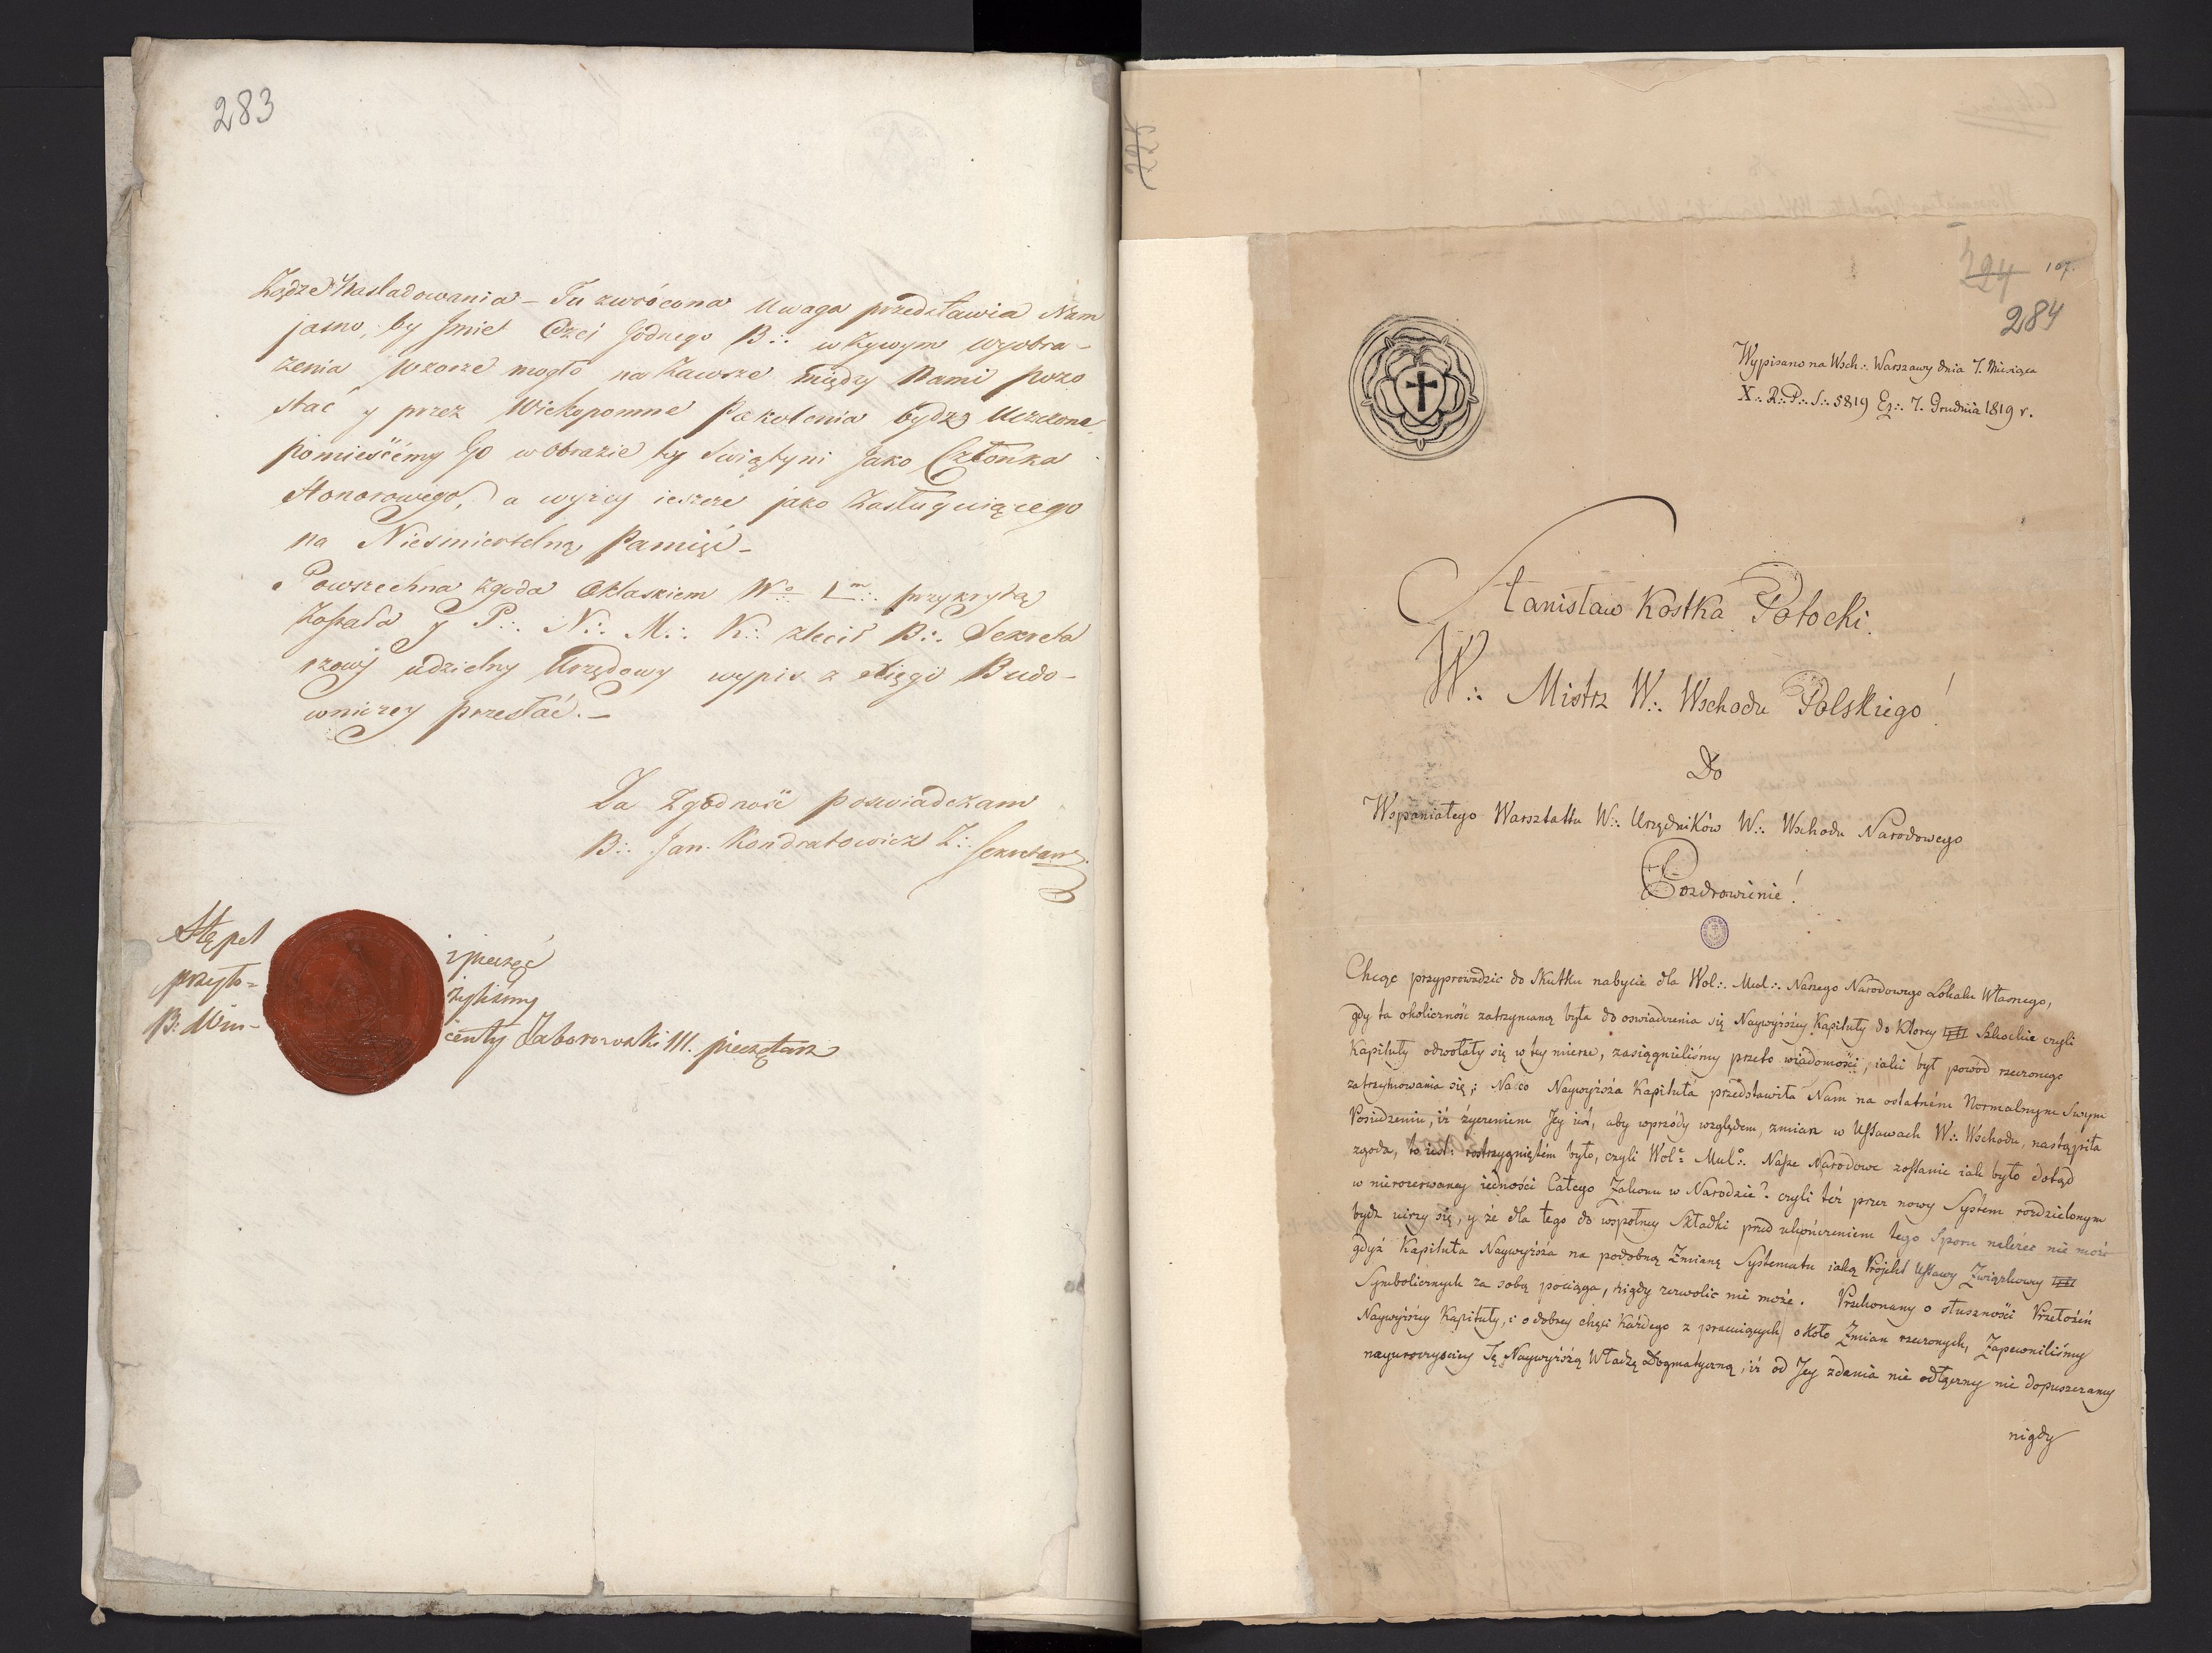 283
Żądze Nasladowania – Tu zwrócona Uwaga przedstawia Nam
jasno, by Jmie Czci Godnego B∴ w Zywym wyobra-
żenia Wzorze mogło na Zawsze między Nami pozo
stać y przez Wiekopomne Pokolenia bydź Uczczone
pomieśćmy Go w obrazie tey Swiątyni Jako Członka
Honorowego, a wyżey ieszcze jako Zasługuiącego
na Niesmiertelną Pamięć –
Powszechna zgoda Oklaskiem przykrytą
Została y P∴ N∴ M∴ K∴ zlecił B∴ Sekreta
rzowi udzielny Urzędowy wypis z Xięgi Budo-
wniczey przesłać. –
Za Zgodność poswiadczam
B∴ Jan Kondratowicz Z∴ Sekretarz.
Stępel i pieczęć
przyło= żyliśmy
B: Win- centy Zaborowski III. pieczętarz
224
107.
284
Wypisano na Wsch∴ Warszawy dnia 7. Miesiąca
X∴ R∴ P∴ S∴ 5819 Ez∴ 7. Grudnia 1819 r.
Stanisław Kostka Potocki.
W∴ Mistrz W∴ Wschodu Polskiego!
Do
Wspaniałego Warsztattu W∴ Urzędników W∴ Wschodu Narodowego
Pozdrowienie!
Chcąc przyprowadzic do Skutku nabycie dla Wol∴ Mul∴ Naszego Narodowego Lokalu Własnego,
gdy ta okoliczność zatrzymaną była do oswiadczenia się Naywyższey Kapituły do ktorey Szkockie czyli
Kapituły odwołały się w tey mierze, zasiągneliśmy przeto wiadomości, iaki był powód rzeczonego
zatrzymowania się; Na co Naywyższa Kapituła przedstawiła Nam na ostatném Normalnym Swym
Posiedzeniu, iż życzeniem Jey iest, aby wprzódy względem zmian w Ustawach W∴ Wschodu, nastąpiła
zgoda, to iest: rostrzygniętém było, czyli Wol∴ Mul∴ Nasze Narodowe zostanie iak było dotąd
w nierozerwaney iedności Całego Zakonu w Narodzie? czyli też przez nowy System rozdzielonym
bydź uirzy się, y że dla tego do wspolney Składki przed ukończeniem tego Sporu należec nie może
gdyż Kapituła Naywyższa na podobną Zmianę Systematu iaką Projekt Ustawy Związkowey
Symbolicznych za sobą pociąga, nigdy zezwolic nie może. Przekonany o słuszności Przełożeń
Naywyższey Kapituły, i o dobrey chęci Każdego z pracuiących około Zmian rzeczonych, Zapewniliśmy
nayuroczyściey Tę Naywyższą Władzę Dogmatyczną, iż od Jey zdania nie odłączemy nie dopuszczamy
nigdy